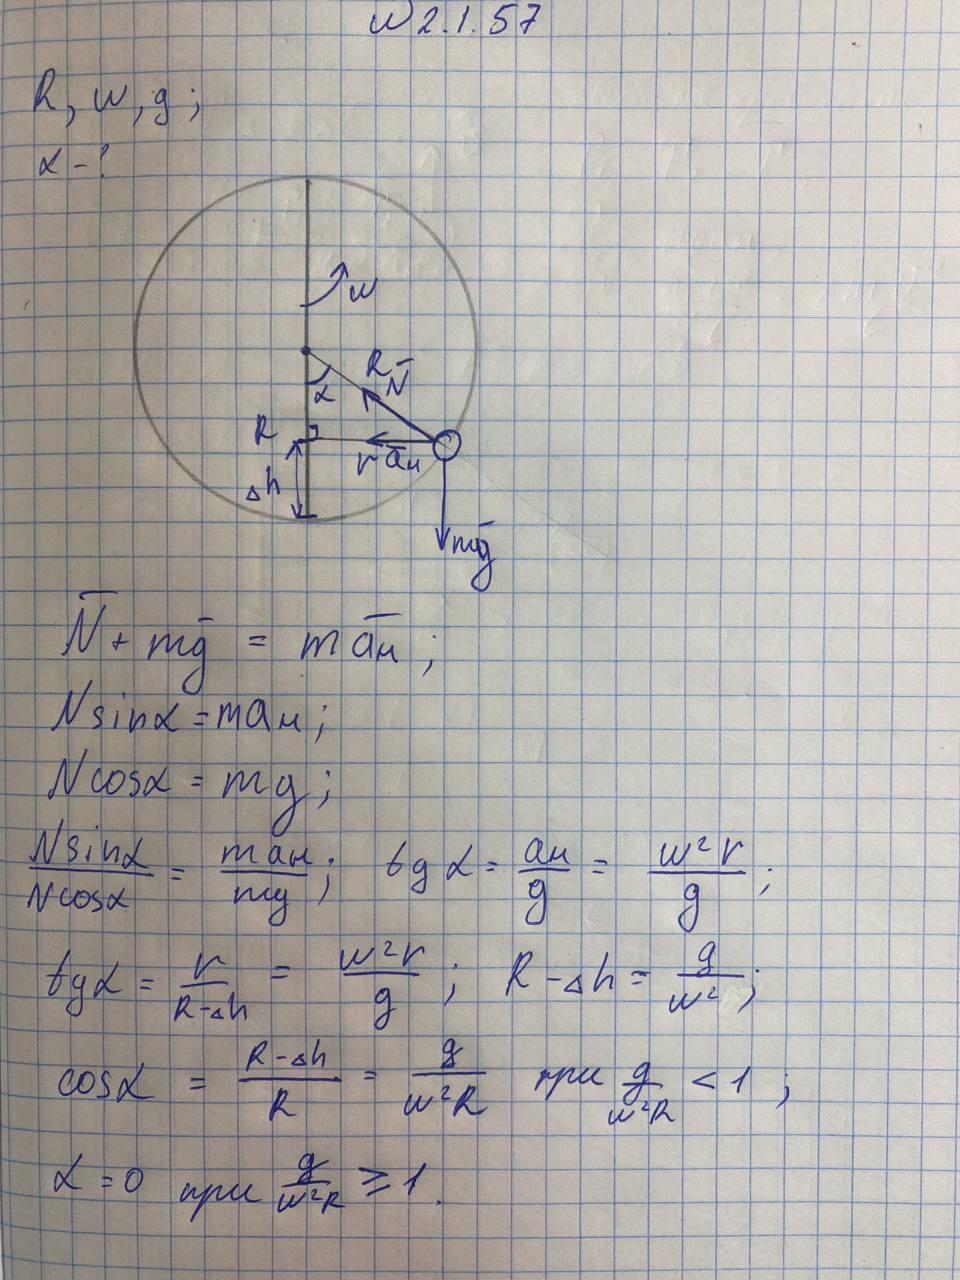 №2.1.57
R, w, g;
α - ?
w
α
R
N̄
R
r
āн
Δh
mḡ
N̄ + mḡ = māн;
Nsinα = maн;
Ncosα = mg;
Nsinα/Ncosα = maн/mg; tgα = aн/g = w²r/g;
tgα = r/(R-Δh) = w²r/g; R-Δh = g/w²;
cosα = (R-Δh)/R = g/w²R при g/w²R < 1;
α = 0 при g/w²R ≥ 1.